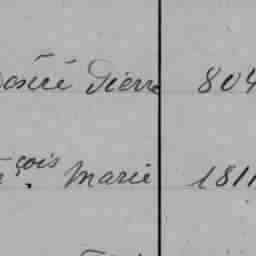 Pierre 804
çois Marie 181